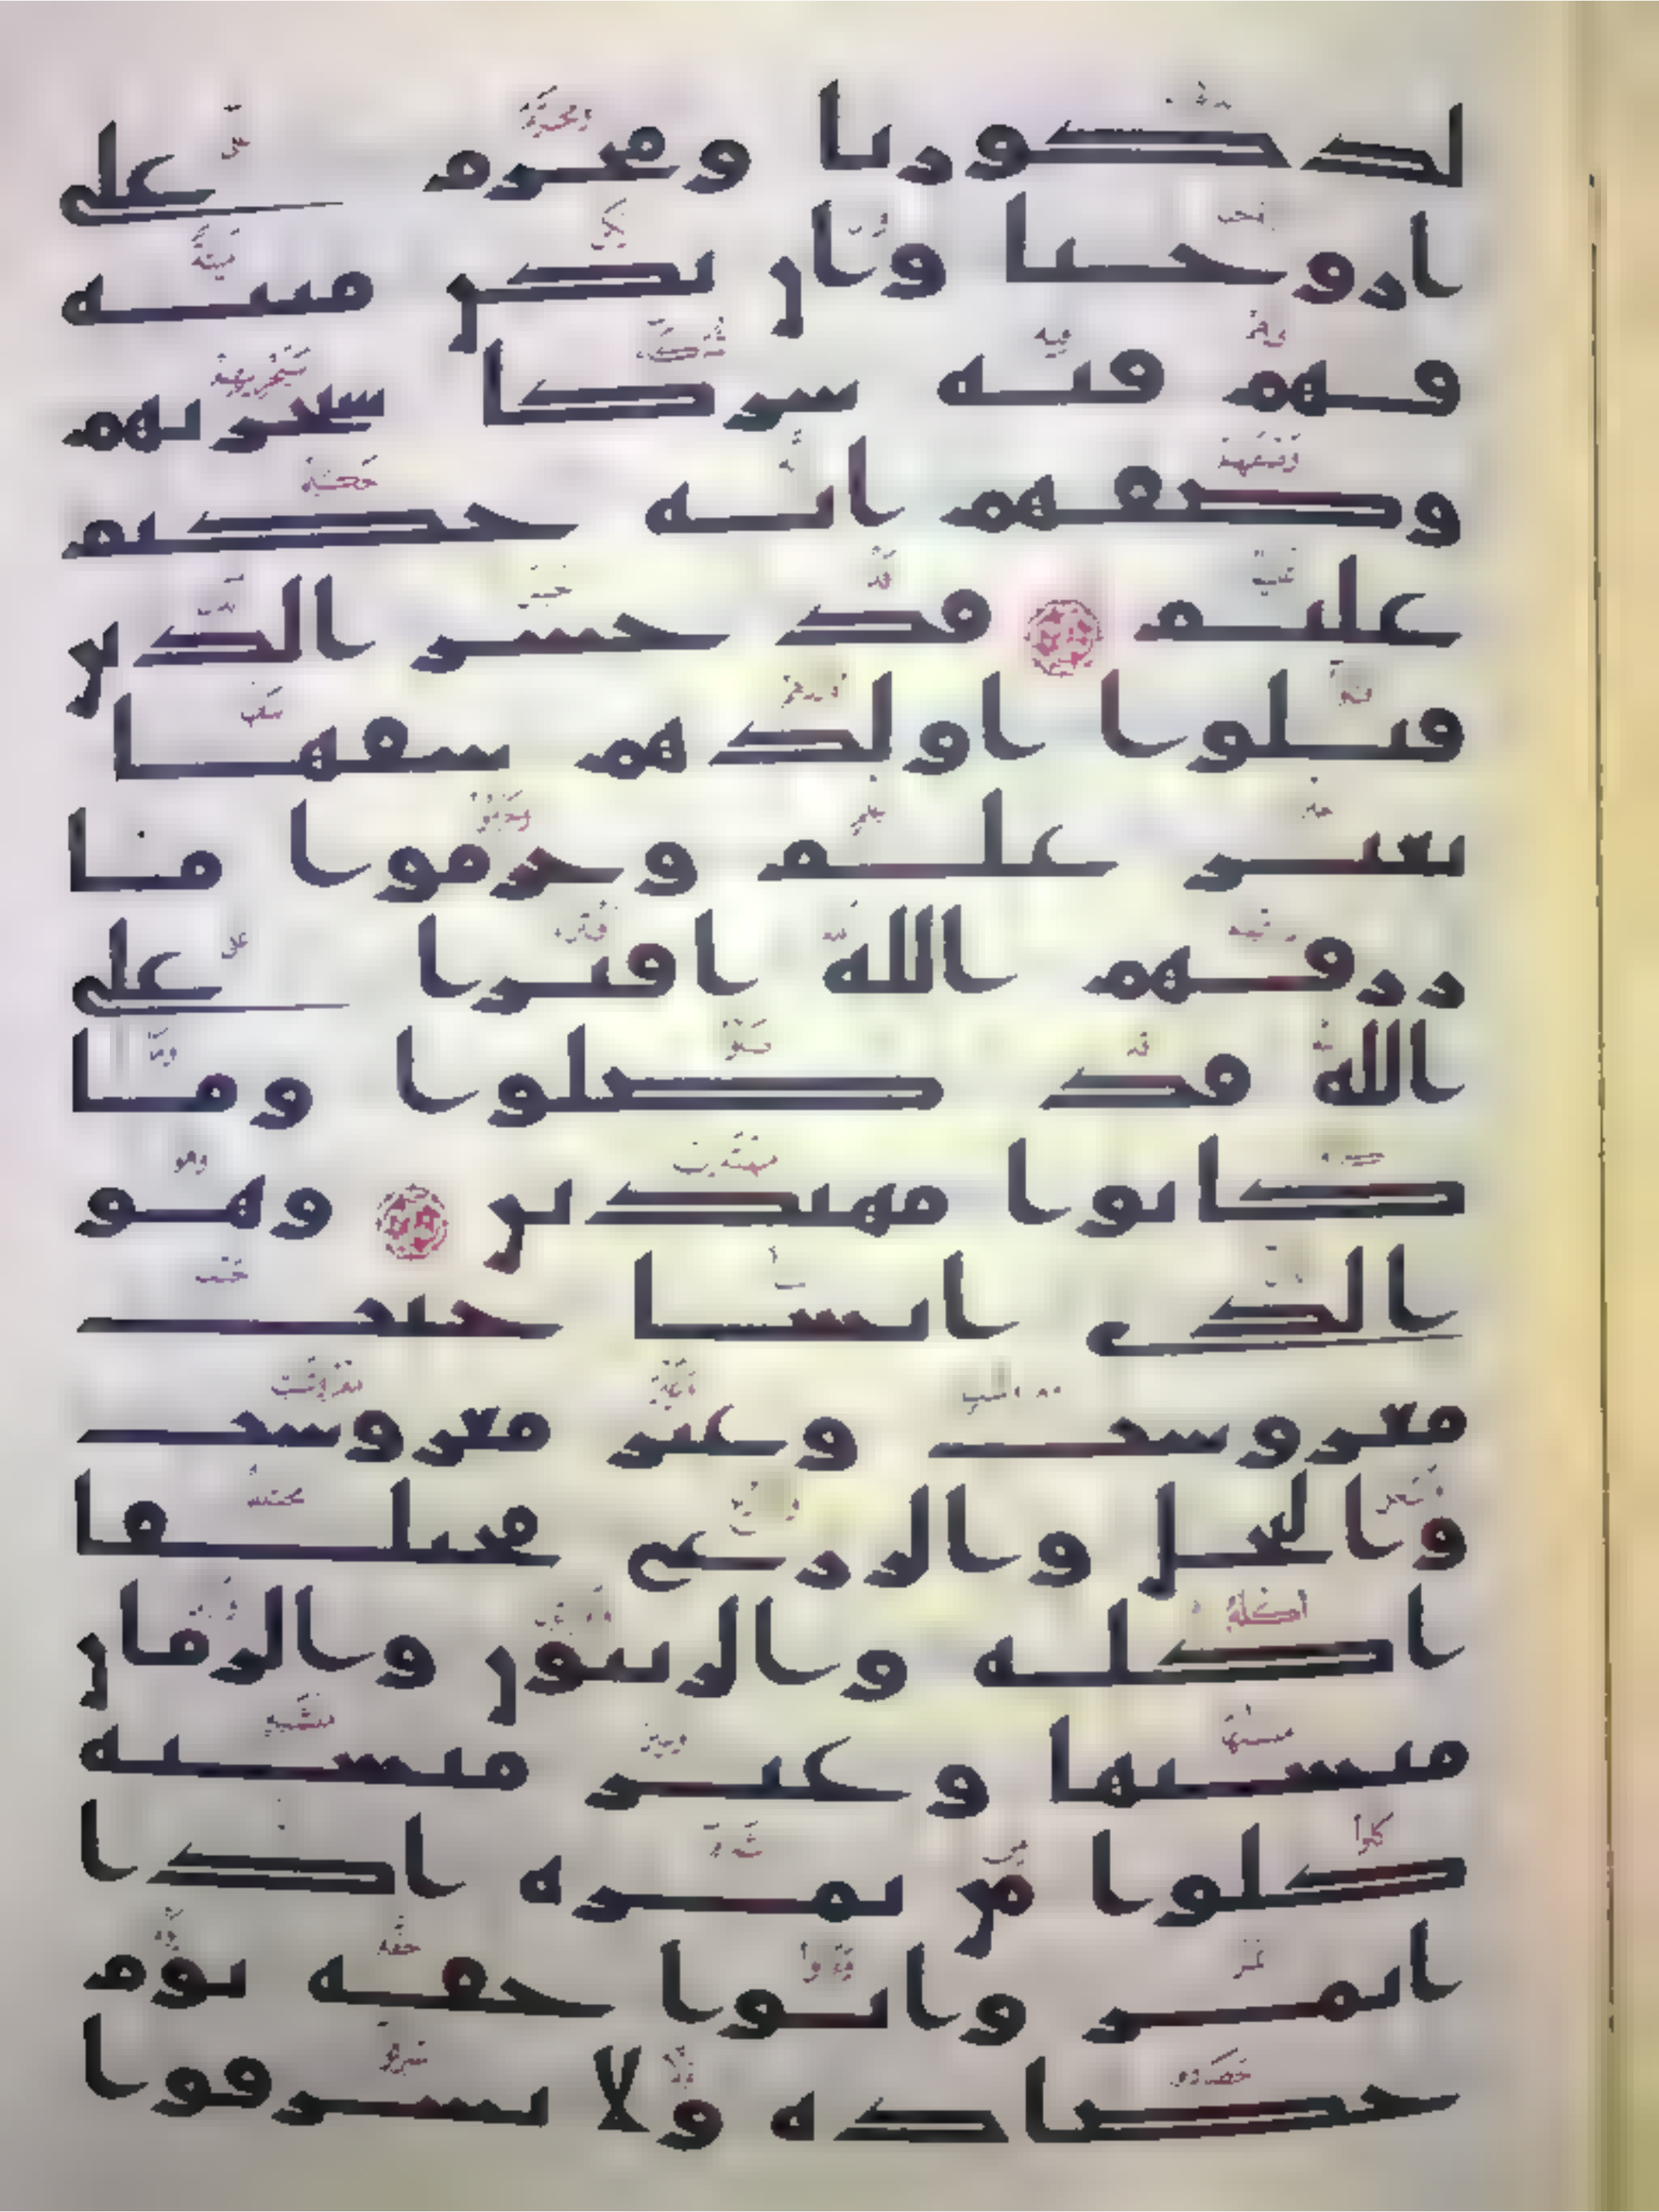 لذكورنا ومحرم على
ازوجنا وان يكن ميته
فهم فيه شركا سيجزيهم
وصفهم انه حكيم
عليم قد خسر الذين
قتلوا اولدهم سفها
بغير علم وحرموا ما
رزقهم الله افترا على
الله قد ضلوا وما
كانوا مهتدين وهو
الذى انشا جنت
معروشت وغير معروشت
والنخل والزرع مختلفا
اكله والزيتون والرمان
متشبها وغير متشبه
كلوا من ثمره اذا
اثمر واتوا حقه يوم
حصاده ولا تسرفوا